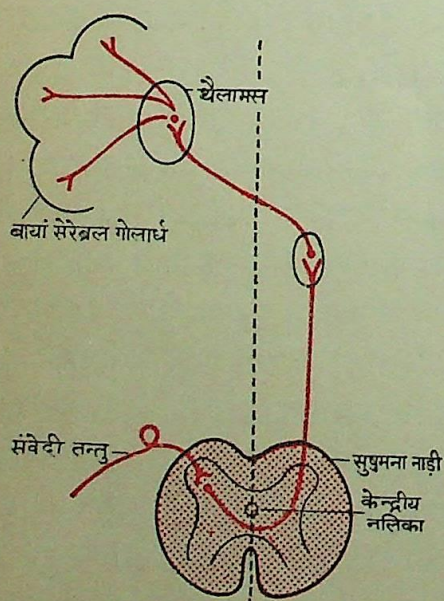 थैलामस
बायां सेरेब्रल गोलार्ध
संवेदी तन्तु
सुषुमना नाड़ी
केन्द्रीय
नलिका